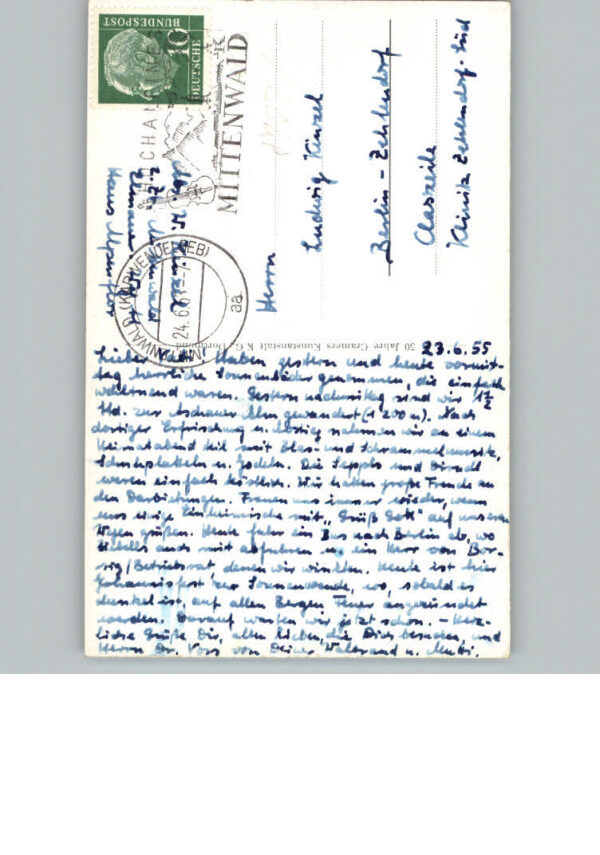 DEUTSCHE
BUNDESPOST
10
MITTENWALD
MITTENWALD (KARWENDELGEB)
24.6.
aa
Herrn
Ludwig Kinzel
Berlin-Zehlendorf
Claszeile
Klinik Zehlendorf-Süd
50 Jahre Cramers Kunstanstalt K.G., Dortmund
23.6.55
Lieber Haben gestern und heute vormit-
tag herrliche Sonnenbäder genommen, die einfach
wohltuend waren. Gestern nachmittag sind wir 1½
Std. zur Aschauer Alm gewandert (1200 m). Nach
dortiger Erfrischung u. Abstieg nahmen wir an einem
Heimatabend teil mit Blas- und Schrammelmusik,
Schuhplatteln u. Jodeln. Die Seppls und Dirndl
waren einfach köstlich. Wir hatten große Freude an
den Darbietungen. Freuen uns immer wieder, wenn
uns einige Einheimische mit „Grüß Gott" auf unseren
Wegen grüßen. Heute fuhr ein Bus nach Berlin ab, wo
auch mit abfuhren u. ein Herr von Bor-
sig/Betriebsrat denen wir winkten. Heute ist hier
Johannisfest zur Sonnenwende, wo, sobald es
dunkel ist, auf allen Bergen Feuer angezündet
werden. Darauf warten wir jetzt schon. – Herz-
liche Grüße Dir, allen Lieben, die Dich besuchen, und
Herrn Dr. Voss von Deiner Waltraud u. Mutti.